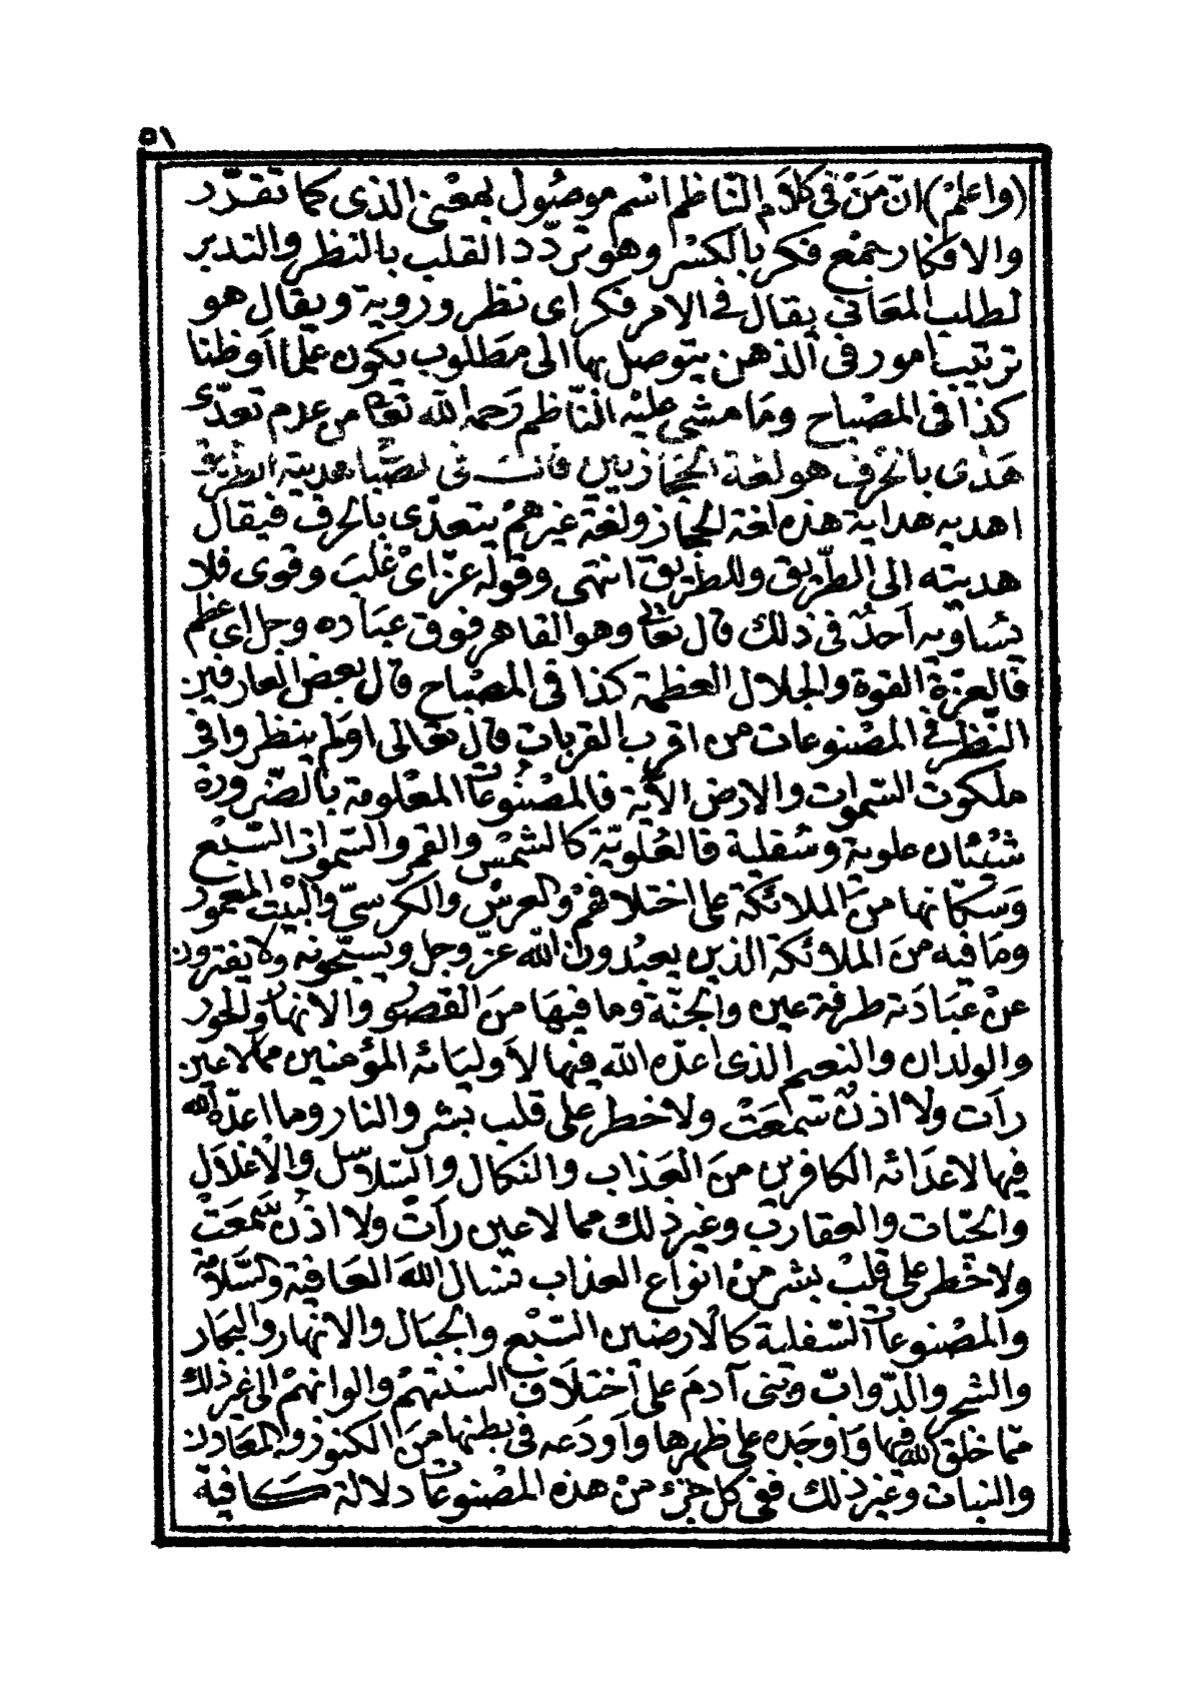 ٥١
(واعلمْ) انّ مَنْ فى كلاَم النّاظم اسْم موصُول بمعْنى الذى كما تقدّر
والافكار جمْع فكر بالكسْر وهو تردّد القلب بالنظر والتدبر
لطلب المعَانى يقال فى الامر فكر اى نظر وروية ويقال هو
ترتيب امور فى الذهن يتوصل بها الى مطلوب يكون علما أوظنا
كذا فى المصْباح ومَا مشى عليْه النّاظم رَحمه الله تعَالى من عدم تعدّى
هَدَى بالحَرْف هو لغة الحجَازيين قانت فى لصْبَا هديته الطريق
اهديه هداية هذه لغة الحجاز ولغة غيرهمْ يتعدّى بالحرف فيقال
هديته الى الطّريق وللطريق انتهى وقوله عزّ اىْ غلبَ وقوى فلا
يسَاويه اَحدٌ فى ذلك قال تعَالى وهو القاهر فوق عبَاده وجل اى عظم
فالعزة القوة والجلال العظمة كذا فى المصْباح قال بعض العارفين
النّظر فى المصْنوعات من اقرب القربات قال تعالى اولم ينظروا فى
ملكوت السموات والارض الآية فالمصْنوعات المعْلومة بالضّرورة
شيْئان علوية وسُفلية فالعُلويّة كالشمْس والقمر والسّموات السّبْع
وَسكّانها منَ الملائكة على اختلافهمْ والعرش والكرسىّ والبيْت المعمور
ومَا فيه منَ الملائكة الذين يعبُدون الله عزّ وجل ويسبّحونه ولا يفترون
عنْ عبَادَته طرفة عين والجنّة وما فيهَا منَ القصُور والانهار والحور
والولدان والنعيم الذى اعدّه الله فيها لاَوليَائه المؤمنين ممالاعين
رات ولا اذنٌ سَمعَتْ ولا خطر على قلب بشر والنار وما اعدّه الله
فيها لاعدَائه الكافرين منَ العَذاب والنكال والسّلاسل والاغلال
والحيّات والعقارب وغير ذلك مما لا عين رأت ولا اذنٌ سَمعَتْ
ولا خطر على قلْب بشر منْ انواع العذاب نسَال اللهَ العَافية والسّلامة
والمصْنوعاتُ السّفلية كالارضين السّبْع والجبَال والانهار والبحَار
والشجر والدّوابّ وبَنى آدمَ على أختلاَف السنتهمْ والوانهمْ الى غير ذلك
ممّا خلق الله فيها وَاَوْجَده على ظهرها وأودَعه فى بطنها منَ الكنوز والمعَادن
والنبات وغيْر ذلك ففى كل جزْء منْ هذه المصْنوعات دلالة كافية